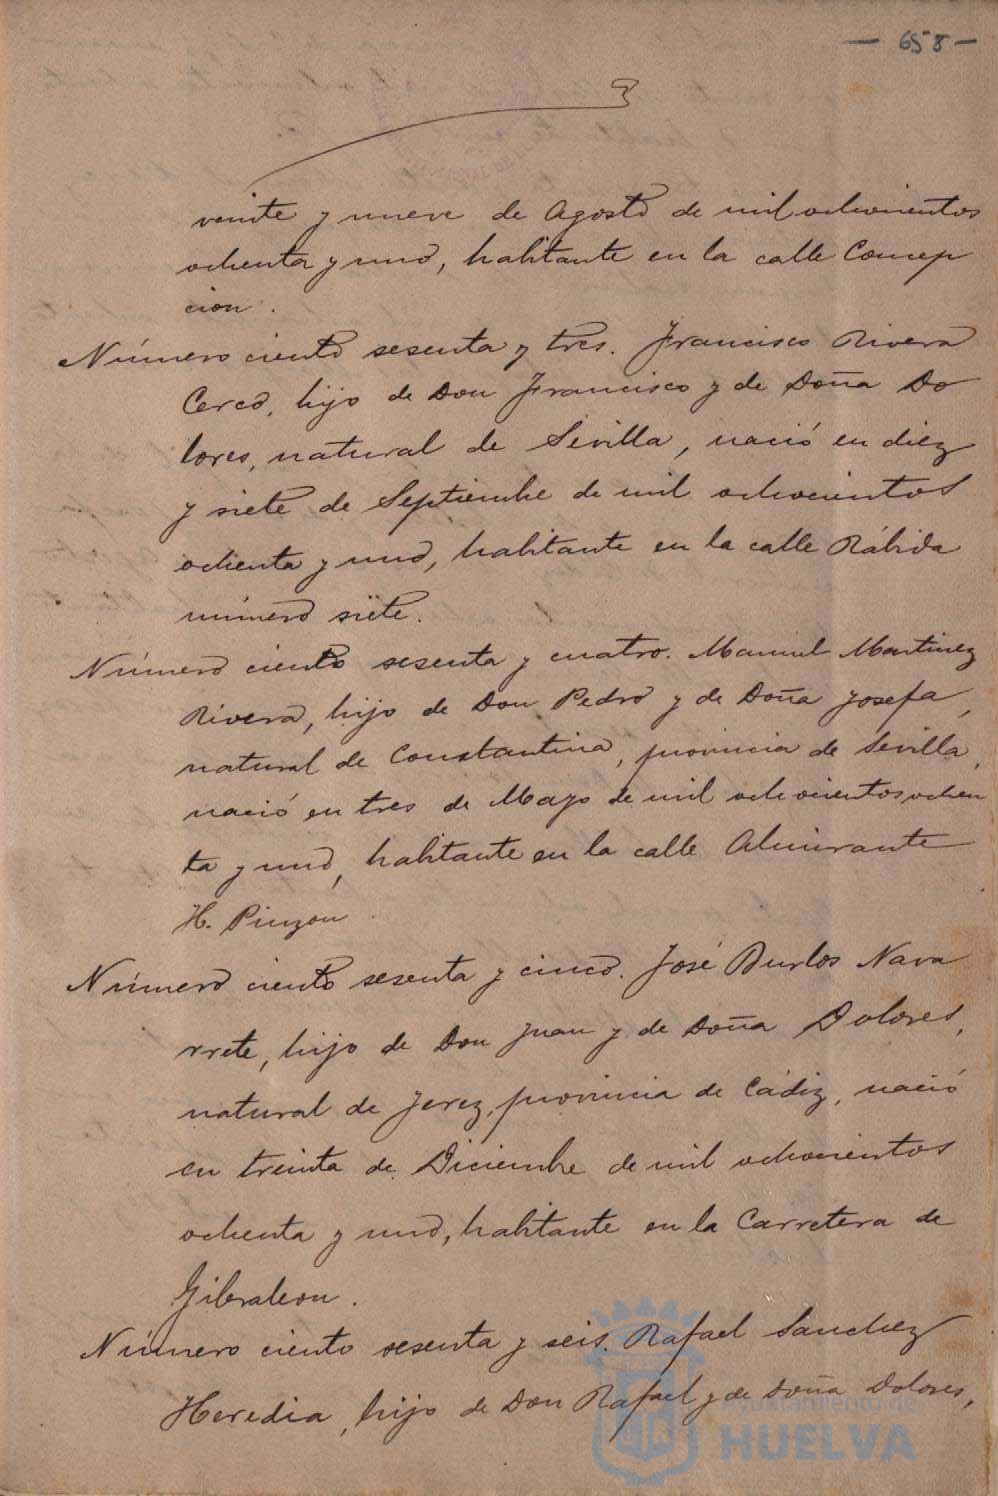 - 658 -
veinte y nueve de Agosto de mil ochocientos
ochenta y uno, habitante en la calle Concep
cion.
Número ciento sesenta y tres. Francisco Rivera
Cerco, hijo de Don Francisco y de Doña Do
lores, natural de Sevilla, nació en diez
y siete de Septiembre de mil ochocientos
ochenta y uno, habitante en la calle Rábida
número siete.
Número ciento sesenta y cuatro. Manuel Martinez
Rivera, hijo de Don Pedro y de Doña Josefa,
natural de Constantina, provincia de Sevilla,
nació en tres de Mayo de mil ochocientos ochen
ta y uno, habitante en la calle Almirante
H. Pinzon.
Número ciento sesenta y cinco. José Burlos Nava
rrete, hijo de Don Juan y de Doña Dolores,
natural de Jerez, provincia de Cádiz, nació
en treinta de Diciembre de mil ochocientos
ochenta y uno, habitante en la Carretera de
Gibraleon.
Número ciento sesenta y seis. Rafael Sanchez
Heredia, hijo de Don Rafael y de Doña Dolores,
Ayuntamiento de
HUELVA